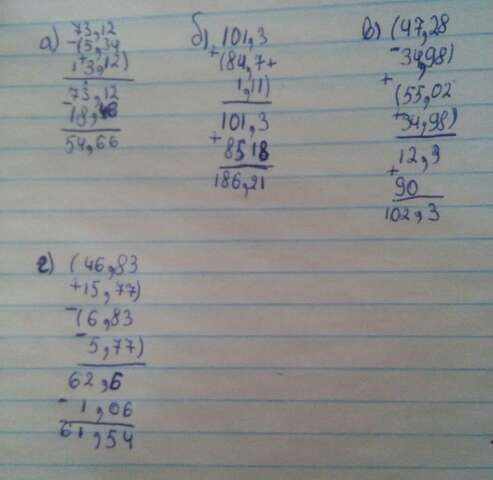 а) 73,12
-(5,34
+13,12)
73,12
-18,46
54,66
б) 101,3
+(84,7+
1,11)
101,3
+8518
186,21
в) (47,28
-34,98)
+
(55,02
+34,98)
12,3
+
90
102,3
г) (46,83
+15,77)
-(6,83
-5,77)
62,6
-1,06
61,54